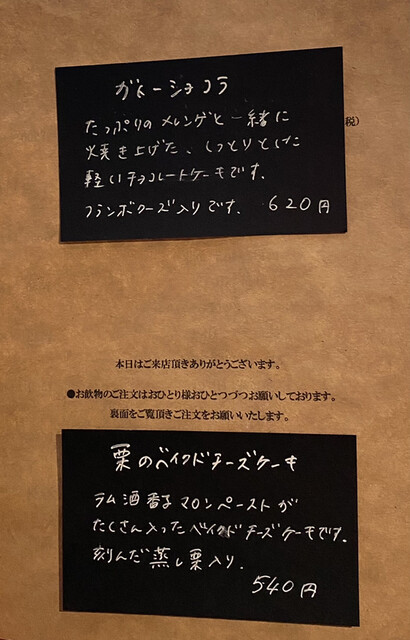 ガトーショコラ
たっぷりのメレンゲと一緒に
焼き上げた、しっとりとした
軽いチョコレートケーキです。
フランボワーズ入りです。 620円
税)
本日はご来店頂きありがとうございます。
●お飲物のご注文はおひとり様おひとつづつお願いしております。
裏面をご覧頂きご注文をお願いいたします。
栗のベイクドチーズケーキ
ラム酒香るマロンペーストが
たくさん入ったベイクドチーズケーキです。
刻んだ蒸し栗入り.
540円